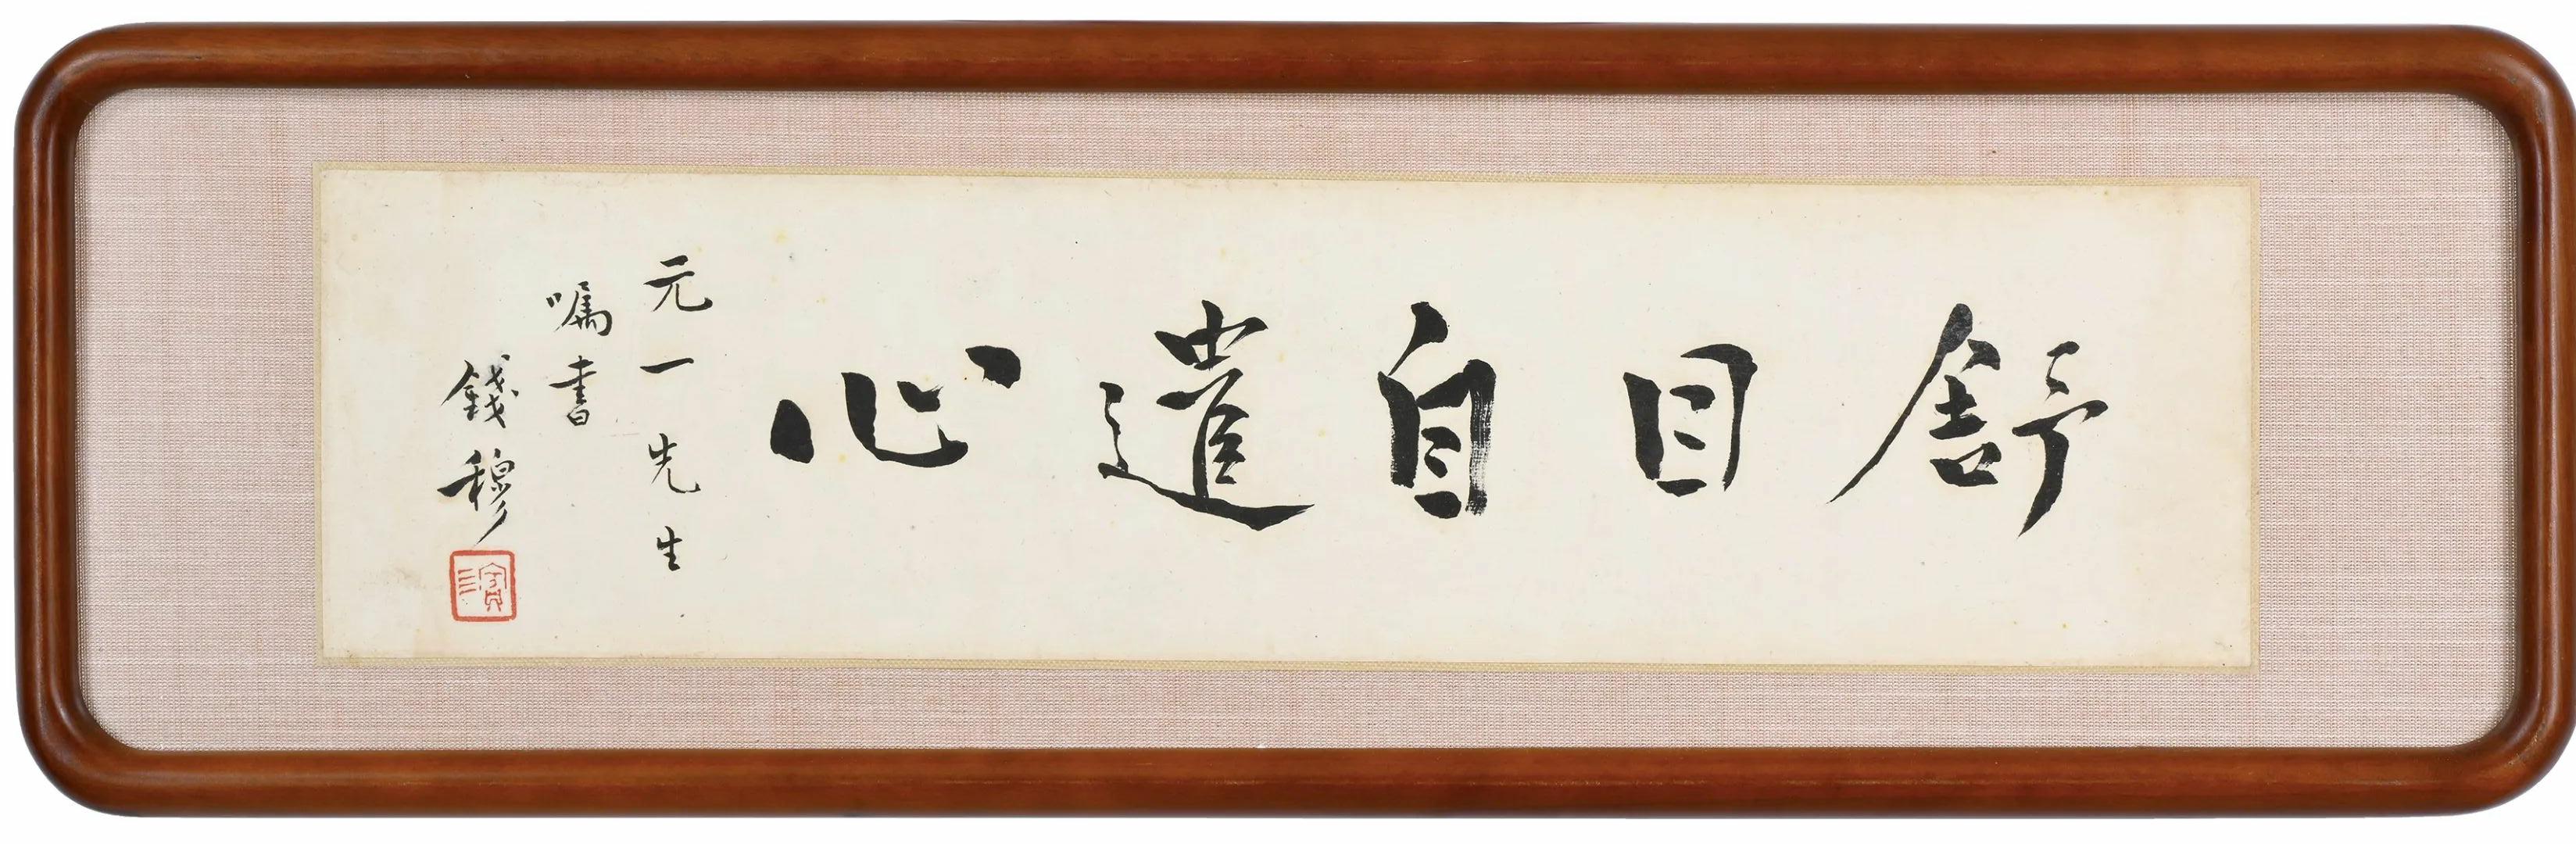 舒目自遣心
元一先生
嘱書
錢穆
賓四